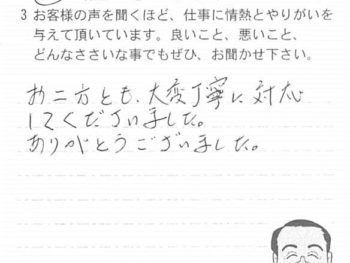 3 お客様の声を聞くほど、仕事に情熱とやりがいを
与えて頂いています。良いこと、悪いこと、
どんなささいな事でもぜひ、お聞かせ下さい。
お二方とも、大変丁寧に対応
してくださいました。
ありがとうございました。